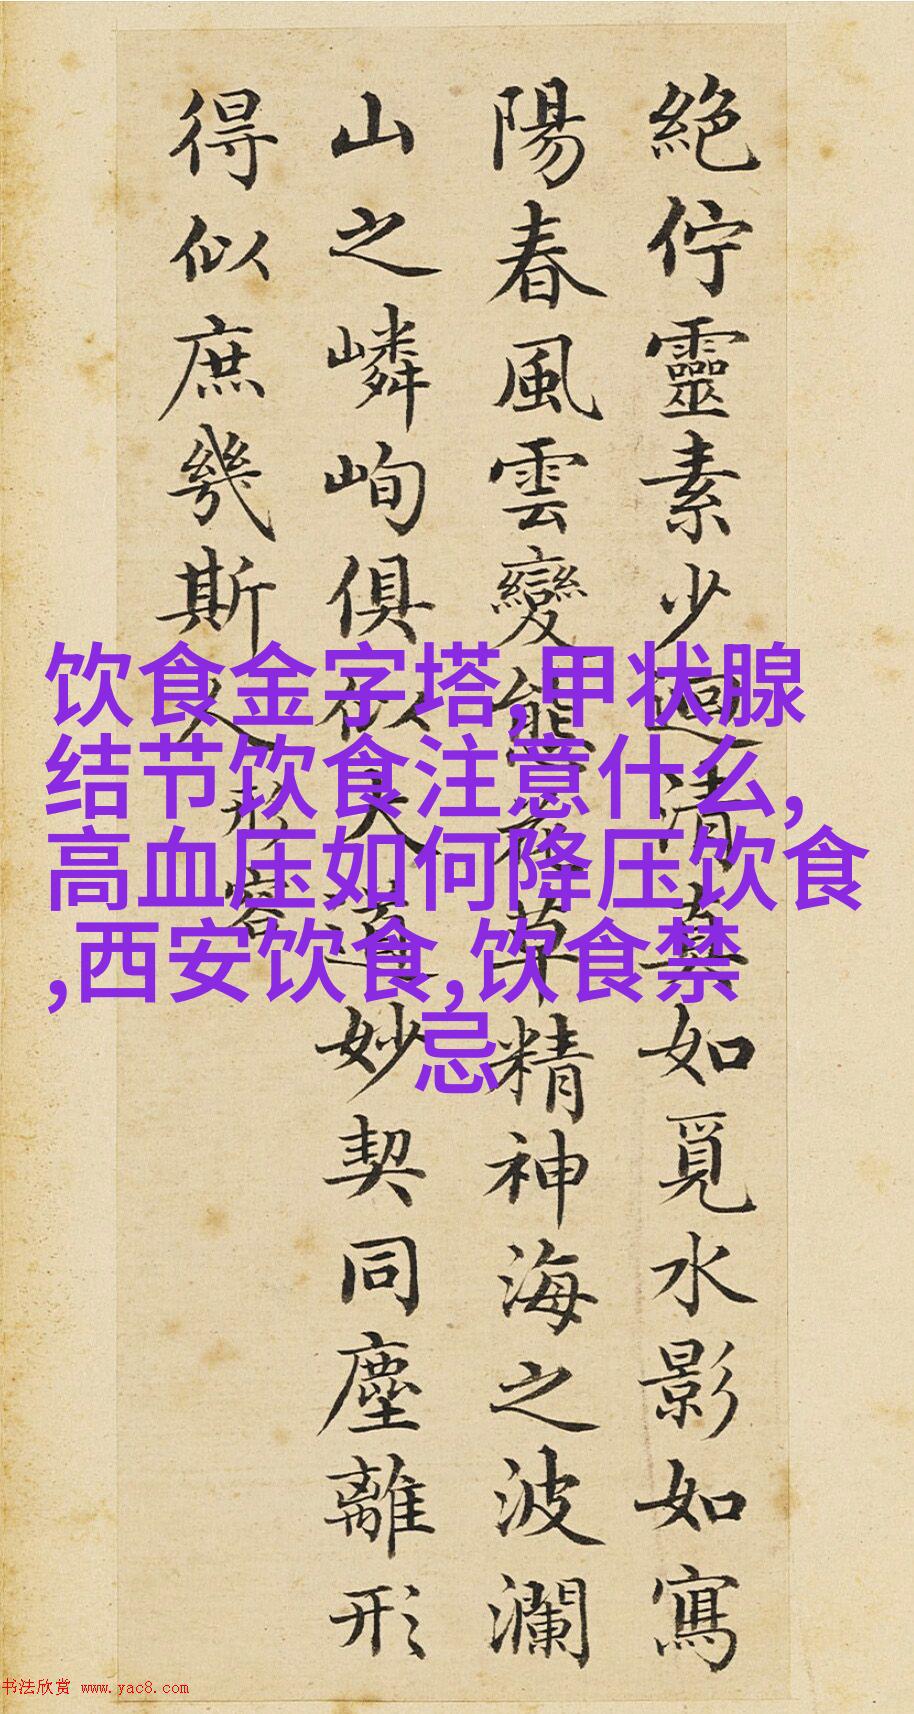 絕佇靈素少迴清真如覓水影如寫
陽春風雲變態花草精神海之波瀾
山之嶙峋俱似大道妙契同塵離形
得似庶幾斯人
形容
饮食金字塔,甲状腺
结节饮食注意什么,
高血压如何降压饮食
,西安饮食,饮食禁
忌
书法欣赏 www.yac8.com